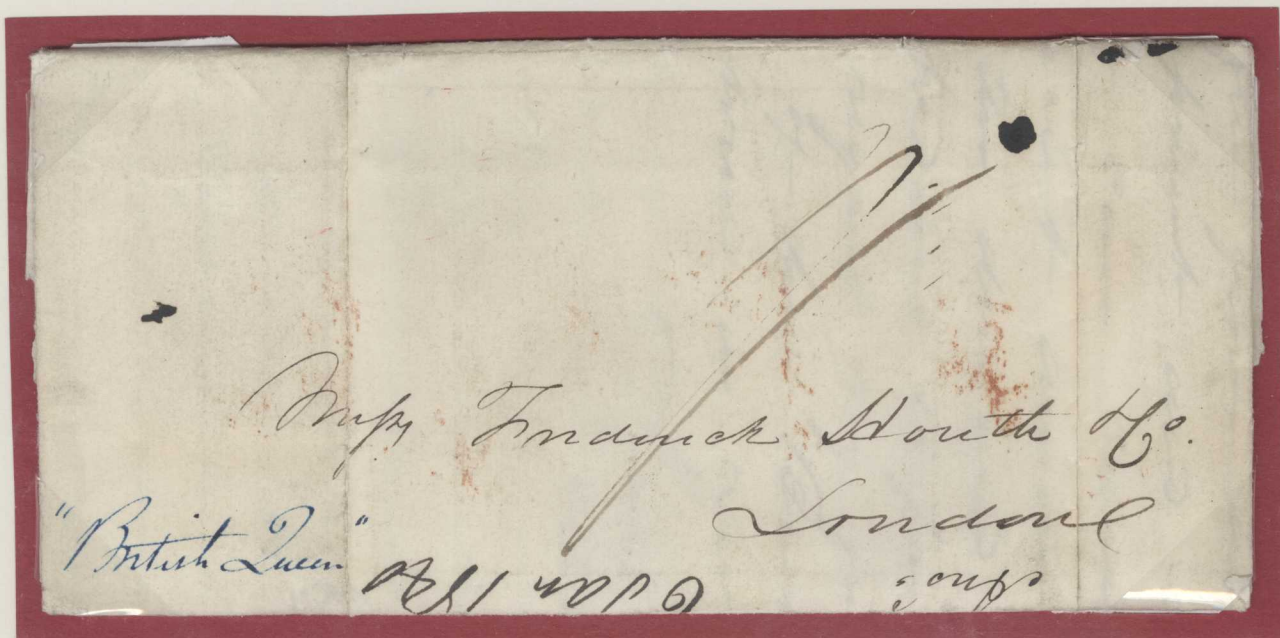 Messrs Frederick Huth & Co.
London
"British Queen"
6 Jan